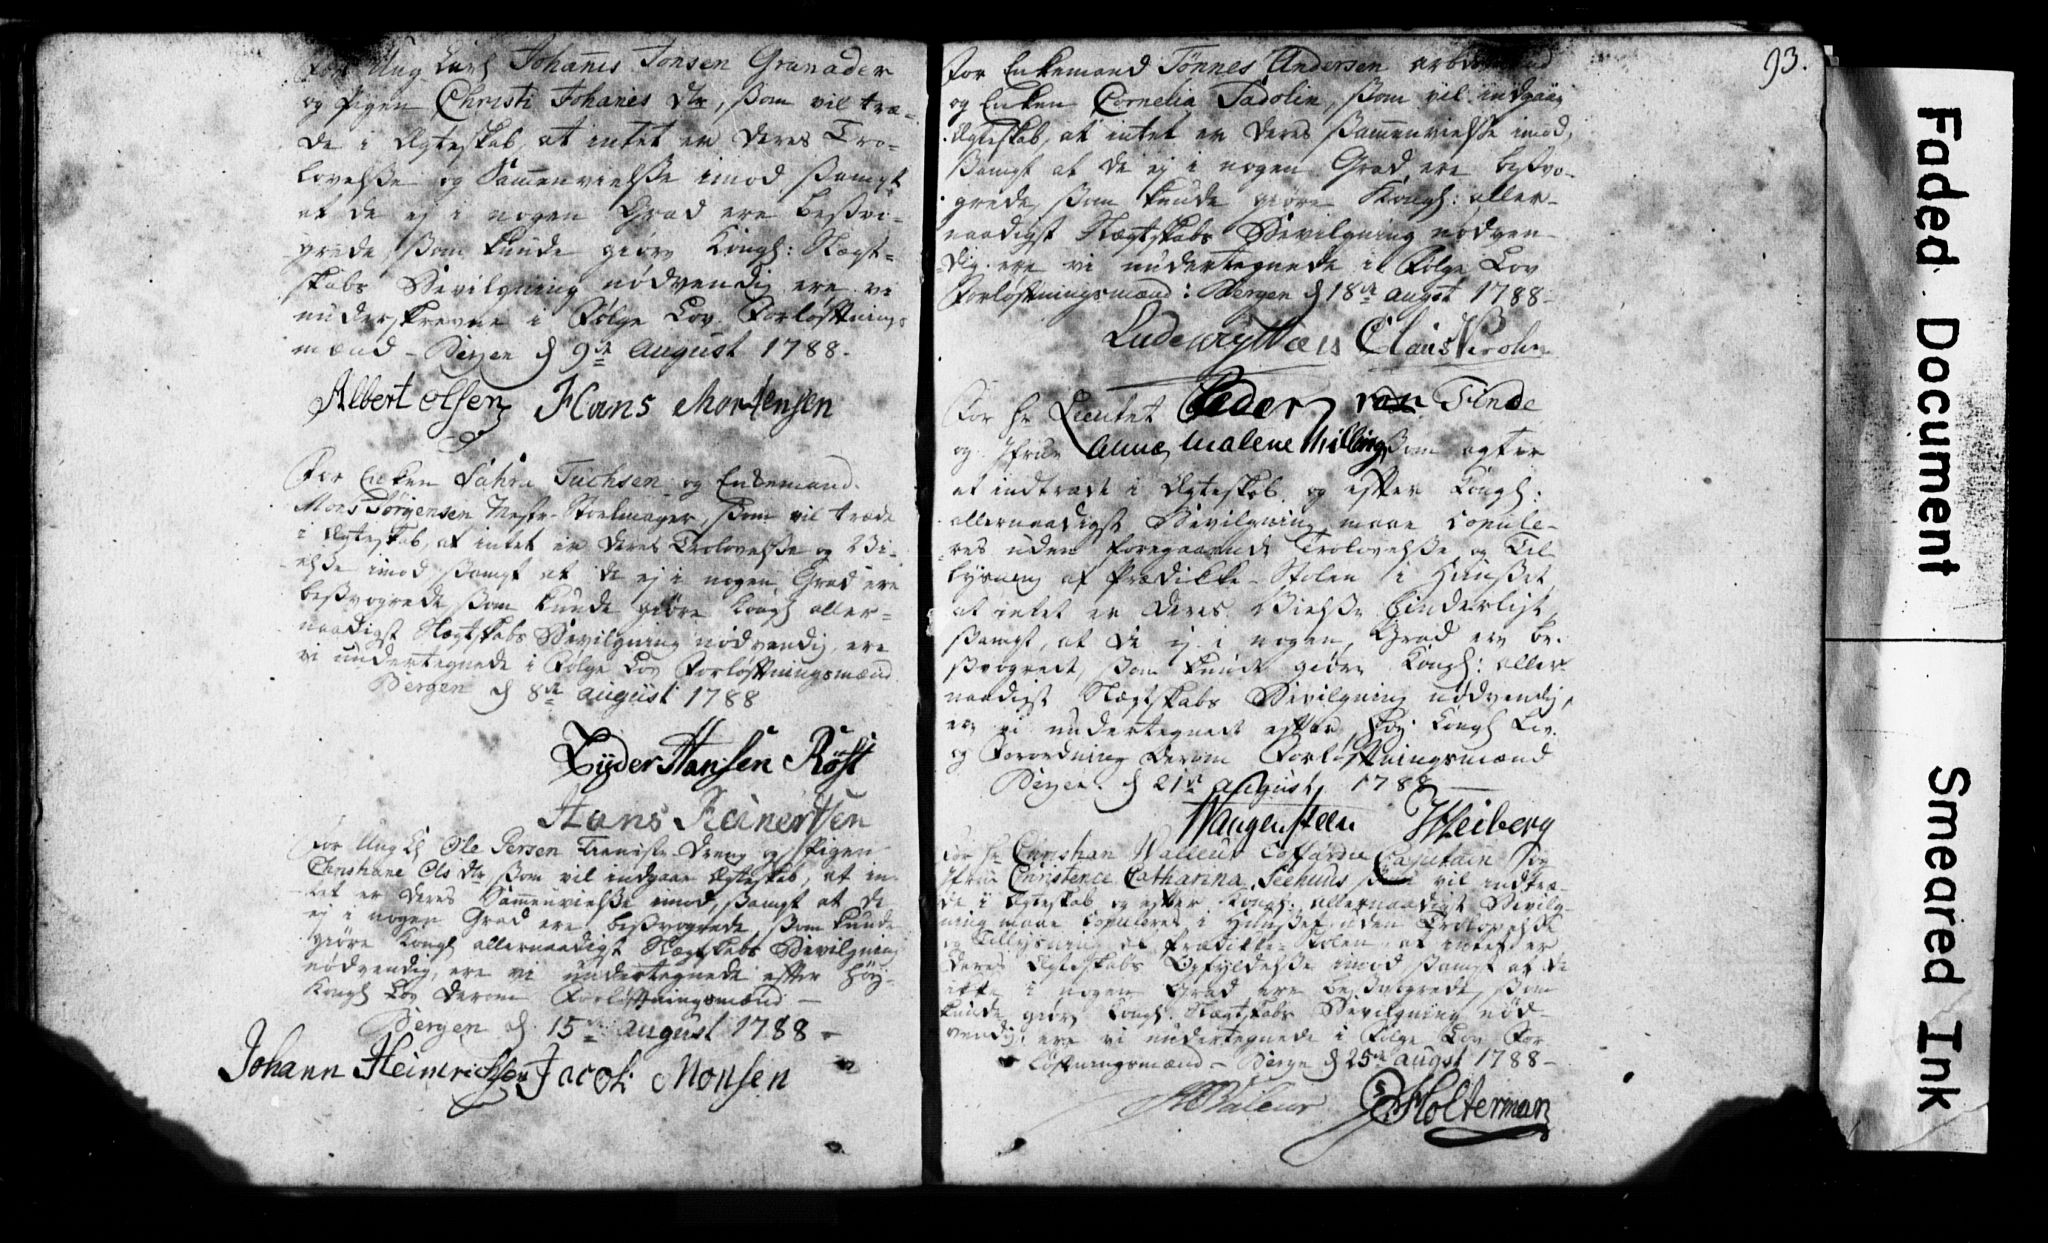 For Ung Karl Johanes Jonsen Granader
og Pigen Christi Johanes dtr, som vil træ-
de i Ægteskab, at intet er deres Tro-
lovelsse og Sammenvielsse imod, sampt
at de ej i nogen Grad ere besvo-
grede som kunde giøre Kongl: Slægt-
skabs Bevilgning nødvendig ere vi
underskrevne i Følge Lov Forløftnings
mænd - Bergen d 9de August 1788.
Albert Olsen Hans Mortensen
For Enken Sahra Tuchsen og Enkemand
Mons Jørgensen Mestr. Stoelmager, som vil træde
i Ægteskab, at intet er deres Trolovelsse og Vi-
elsse imod, sampt at de ej i nogen Grad ere
besvogrede, som kunde giøre Kongl aller-
naadigst Slægtskabs Bevilgning nødvendig, ere
vi undertegnede i Følge Lov Forløftningsmænd
Bergen d 8de august 1788
Lyder Hansen Røst
Hans Reinertsen
For Ung K Ole Persen Tieniste Dreng og Pigen
Christiane Ols dtr som vil indgaae Ægteskab, at in-
tet er deres Sammenvielsse imod, sampt at de
ej i nogen Grad ere besvogrede, som kunde
giøre Kongl allernaadigst Slægtskabs Bevilgning
nødvendig, ere vi undertegnede efter Høy-
Kongl Lov derom Forløftningsmænd -
Bergen d. 15de august 1788 -
Johann Heinrichsen Jacob Monsen
93.
For Enkemand Tønnes Andersen
og Enken Cornelia Sadolin, som vil indgaae
Ægteskab, at intet er deres Sammenvielsse imod,
sampt at de ej i nogen Grad ere besvo-
grede, som kunde giøre Kongl: aller-
naadigst Slægtskabs Bevilgning nødven-
dig. ere vi undertegnede i Følge Lov
Forløftningsmænd: Bergen d 18de august 1788-
Claus
For Hr Lieutet Peder von Tinde
og Jfrue Anne Malene Milling, som agter
at indtræde i Ægteskab, og efter Kongl:
allernaadigst Bevilgning maae Copule-
res uden foregaaende Trolovelsse og Til
lysning af Prædikke-Stolen i Huusset,
at intet er deres Vielsse hinderligt,
sampt, at de ej i nogen Grad ere be-
svogrede, som kunde giøre Kongl: aller
naadigst Slægtskabs Bevilgning nødvendig,
ere vi undertegnede efter Høy Kongl Lov
og Forordning derom Forløftningsmænd
Bergen. d 21de august 1788 -
Wangensteen Heiberg
For Hr Christian Walleur Coffardie Capitain og
Jfrue Christence Catharina Seehuus som vil indtræ-
de i Ægteskab og efter Kongl: allernaadigst Bevilg-
ning maae Copuleres i Huusset uden Trolovelsse
og Tillysning af Prædikke-Stolen, at intet er
deres Ægteskabs Opfyldelsse imod sampt at de
ikke i nogen Grad ere besvogrede, som
kunde giøre Kongl. Slægtskabs Bevilgning nød-
vendig, ere vi undertegnede i Følge Lov For
løftningsmænd - Bergen d 25de august 1788 -
Holterman
Faded Document
Smeared Ink